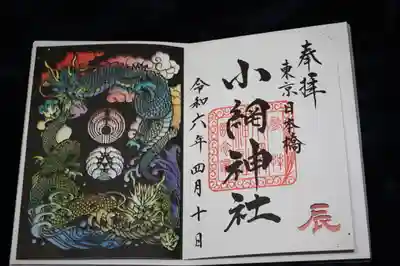 奉拝
東京日本橋
小網神社
令和六年 四月十日
辰